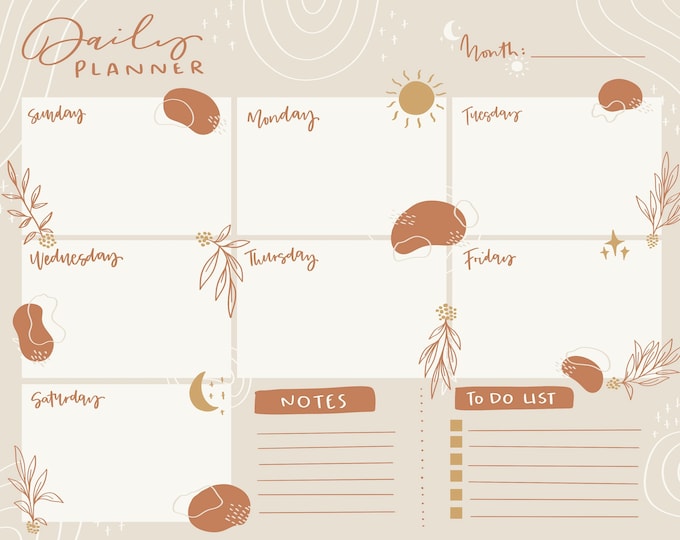 Daily
PLANNER
Month:
Sunday
Monday
Tuesday
Wednesday
Thursday
Friday
Saturday
NOTES
TO DO LIST